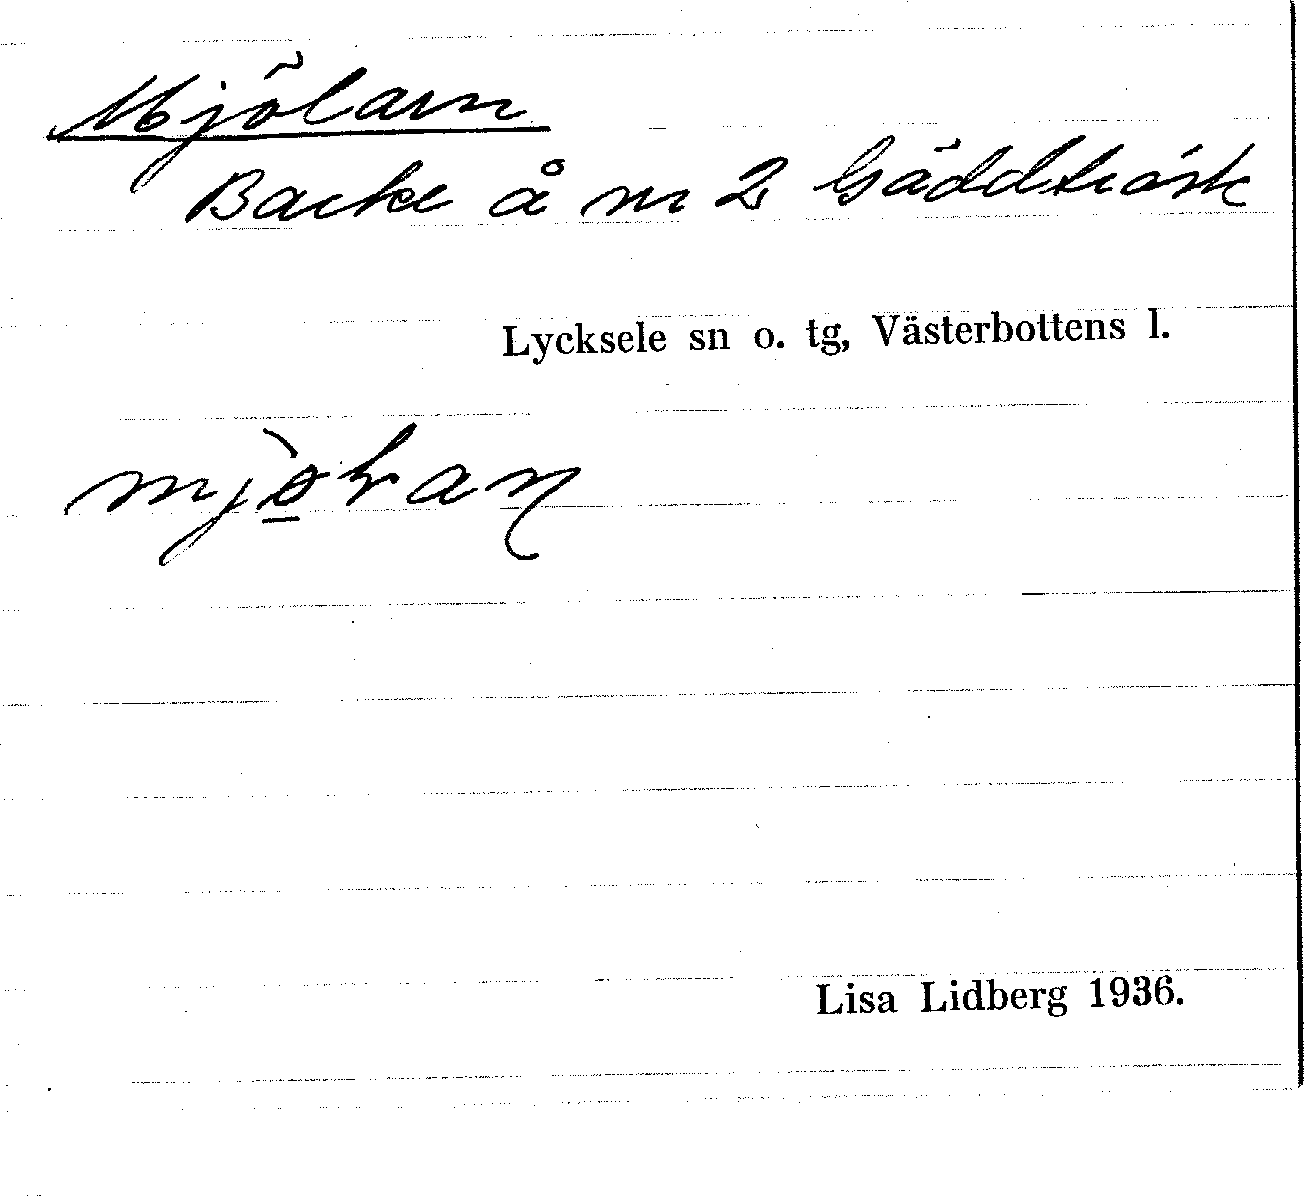 Mjölarn
Backe å nr 2 Gäddträsk
Lycksele sn o. tg, Västerbottens l.
Lisa Lidberg 1936.